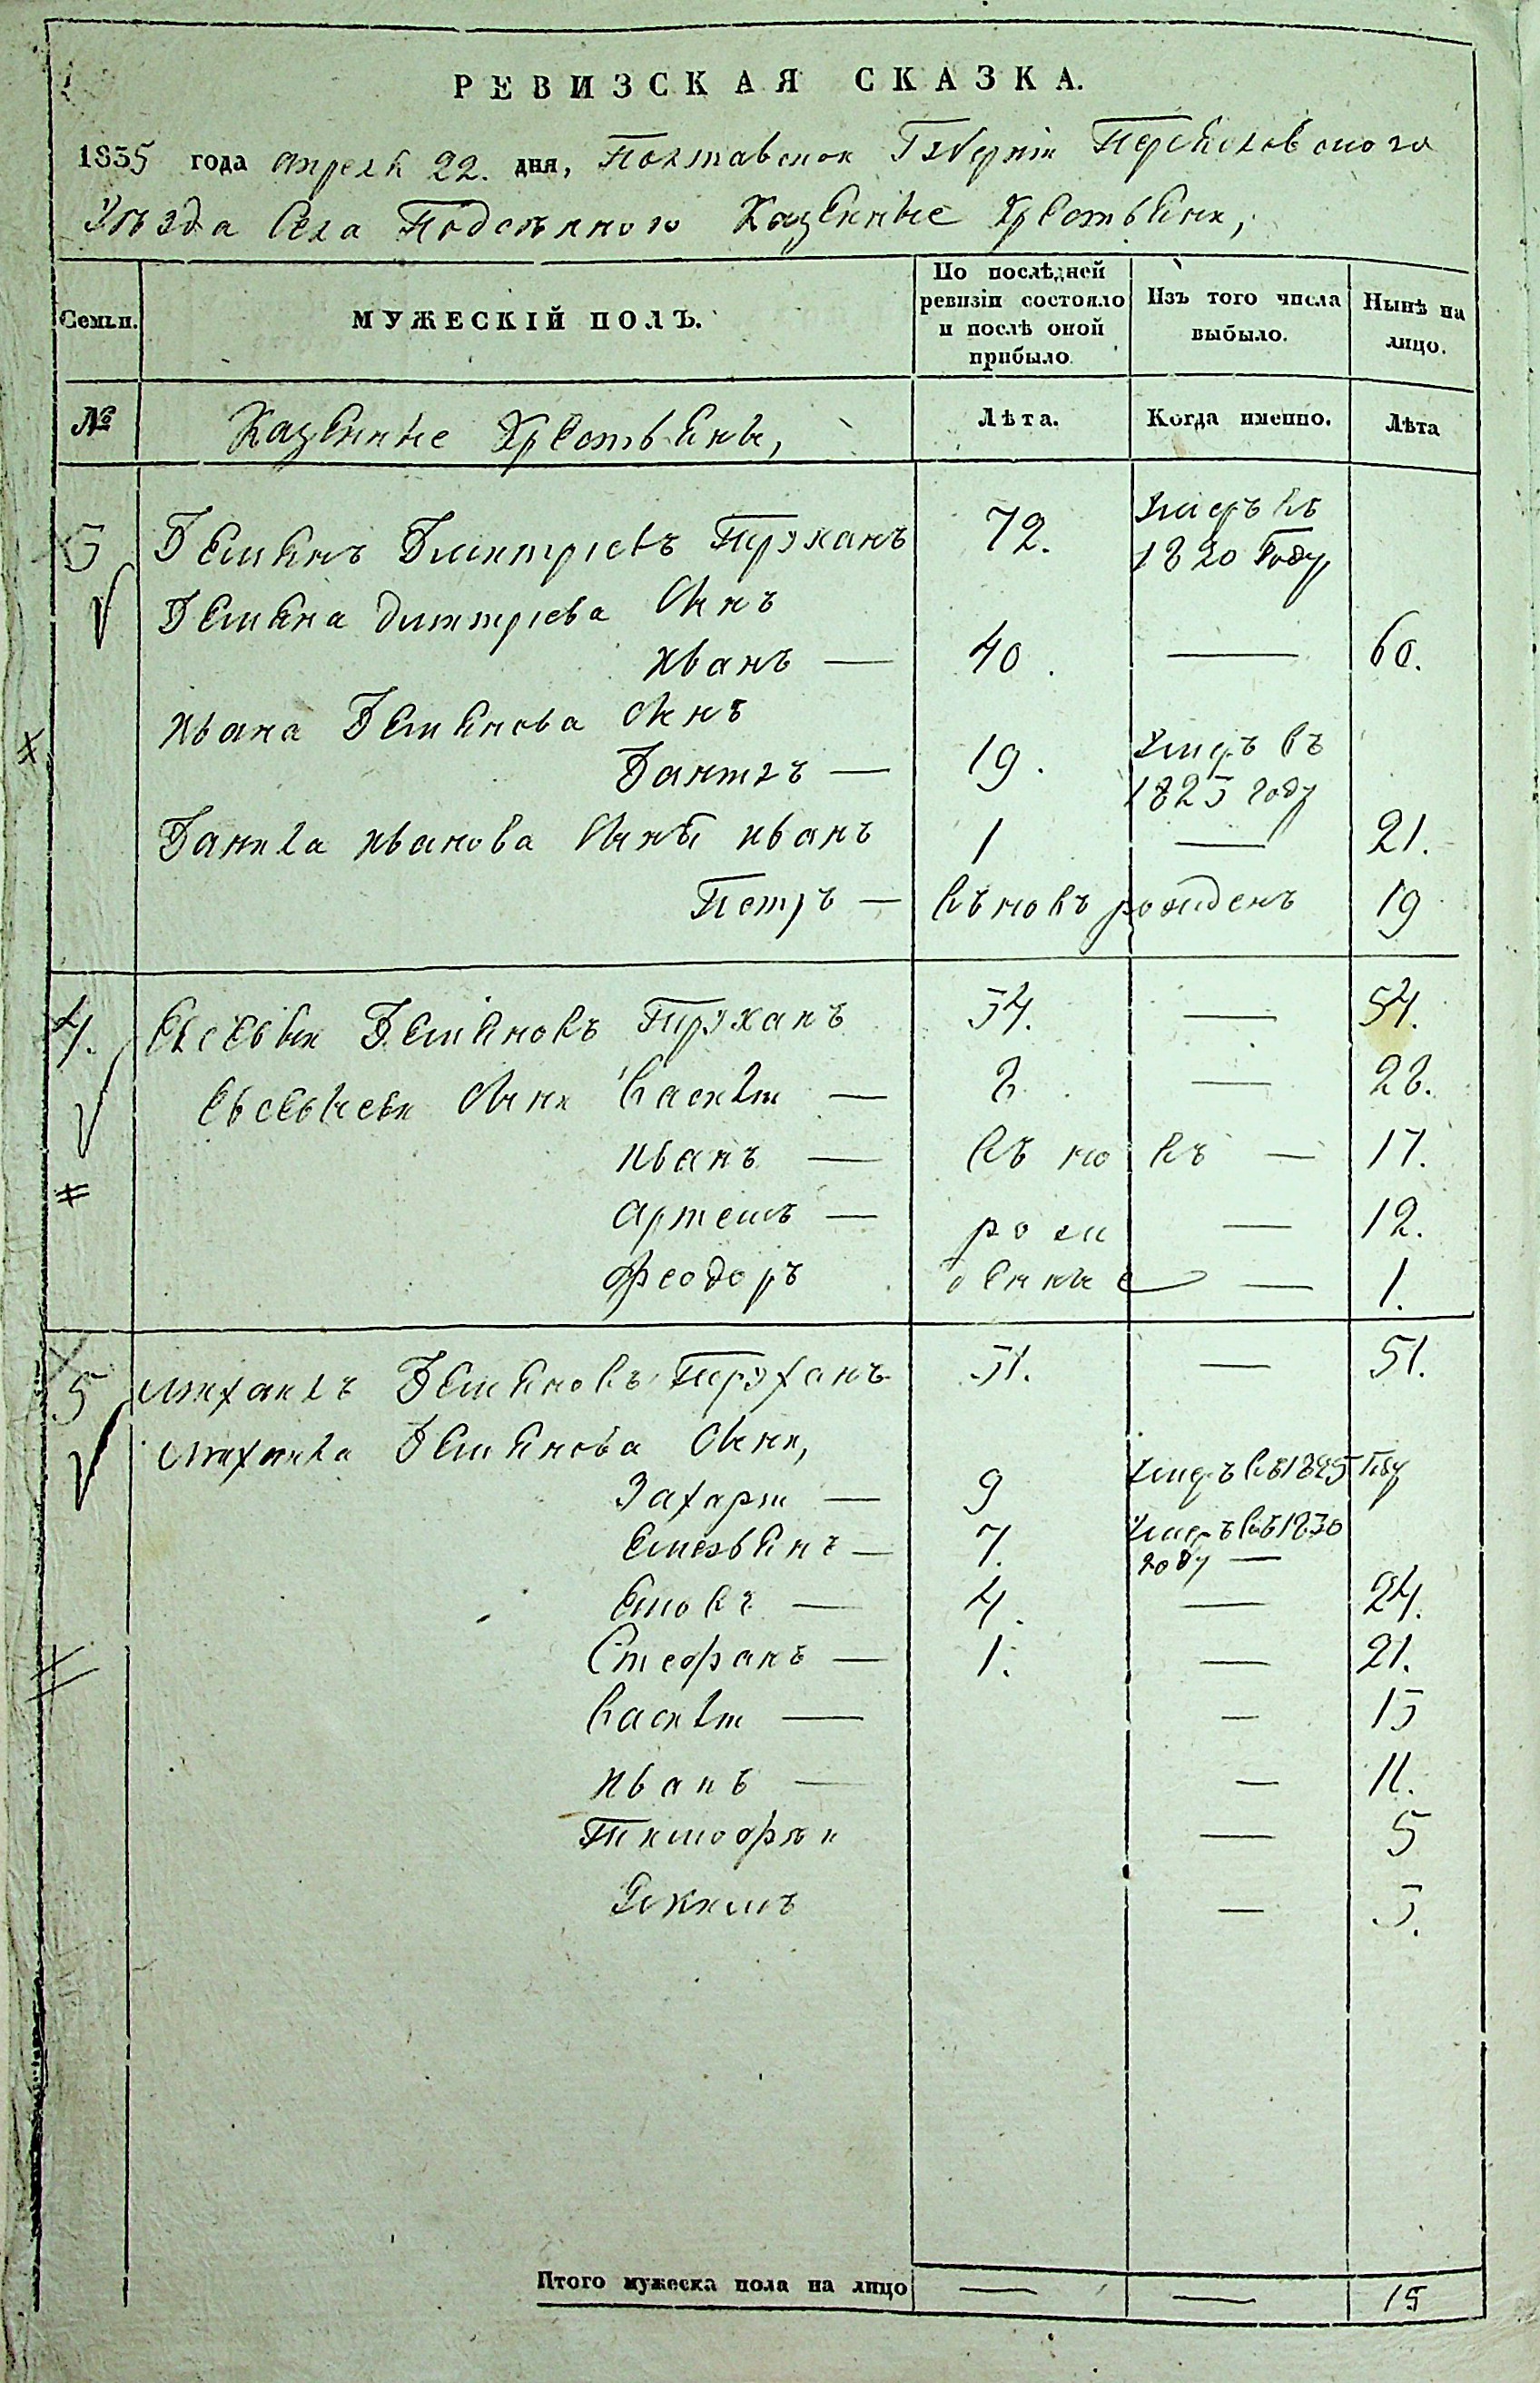 РЕВИЗСКАЯ СКАЗКА.
1835 года апреля 22. дня, Полтавской Губернiи Переясловского
Уѣзда Села Подсѣнного Казенные Крестьяни,
Семьи. МУЖЕСКІЙ ПОЛЪ. По послѣдней ревизіи состояло и послѣ оной прибыло. Изъ того числа выбыло. Нынѣ на лицо.
№ Казенные Крестьяны, Лѣта. Когда именно. Лѣта
3 Демянъ Дмитріевъ Труханъ 72. Умеръ въ 1820 Году
Демяна Дмитріева Сынъ
Иванъ — 40. — 60.
Ивана Демянова Сынъ
Данилъ — 19. Умеръ въ 1825 году
Данила Иванова Сынъ Иванъ 1 — 21.
Петръ — Въновъ рожденъ 19
4. Евсевій Демяновъ Труханъ 34. — 54.
Евсевіеви Сыни Василій — 8. — 28.
Иванъ — въ но въ — 17.
Артемъ — рож — 12.
Феодоръ денные — 1.
5 Михаилъ Демяновъ Труханъ 31. — 51.
Михаила Демянова Сыни,
Захарій — 9 Умеръ въ 1825 Году
Емельянъ — 7. Умеръ въ 1830 году —
Яковъ — 4. — 24.
Стефанъ — 1. — 21.
Василій — — 15
Иванъ — — 11.
Тимофѣй — 5
Якимъ — 3.
Итого мужеска пола на лицо — — 15